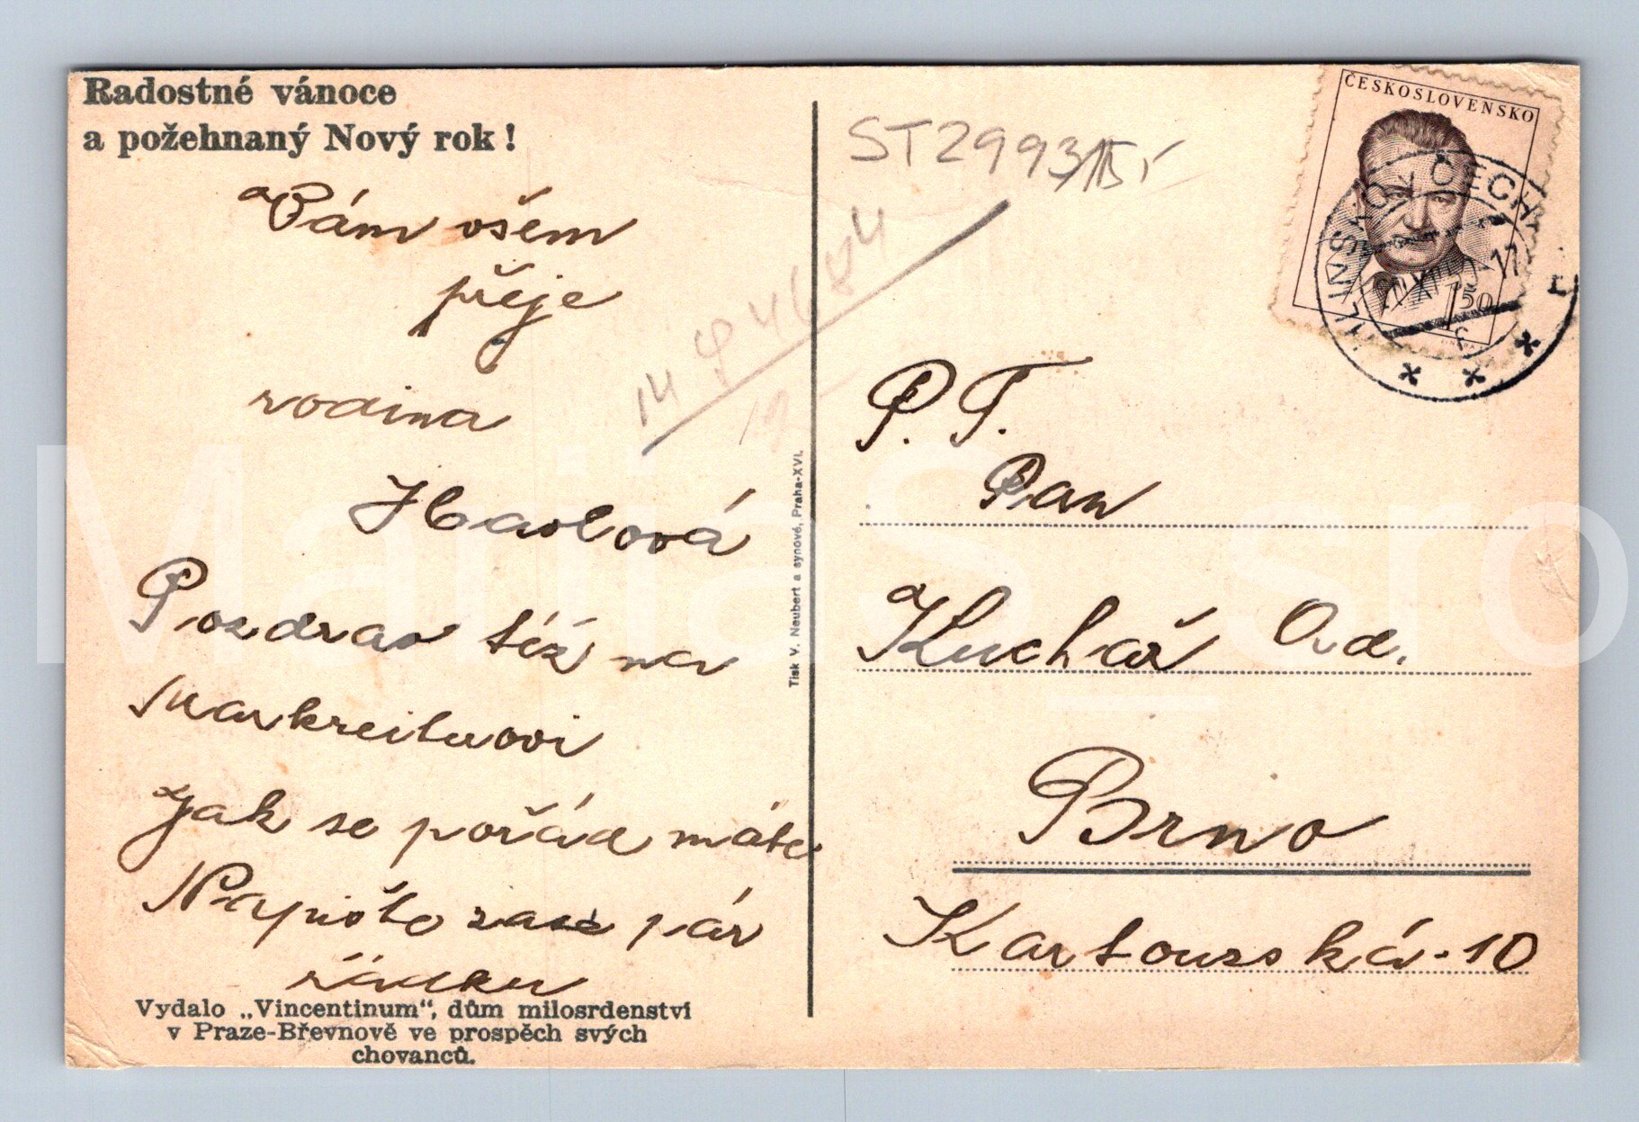 Radostné vánoce
a požehnaný Nový rok!
Vám všem
přeje
rodina
Havlová
Pozdrav též na
Jak se pořád máte
Napište zase pár
řádku
Vydalo „Vincentinum“, dům milosrdenství
v Praze-Břevnově ve prospěch svých
chovanců.
Tisk V. Neubert a synové, Praha-XVI.
ST2993/15
ČESKOSLOVENSKO
1˙50
HLINSKO V ČECH
P. T.
Pan
Kuchař Od.
Brno
Kartouzská-10